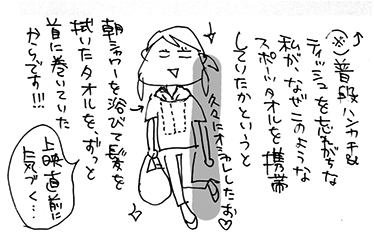 ※普段ハンカチ&
ティッシュを忘れがちな
私が、なぜこのような
スポーツタオルを携帯
していたかというと
久々にオシャレしたお♡
朝シャワーを浴びて髪を
拭いたタオルを、ずっと
首に巻いていた
からです!!!
上映直前に
気づく…